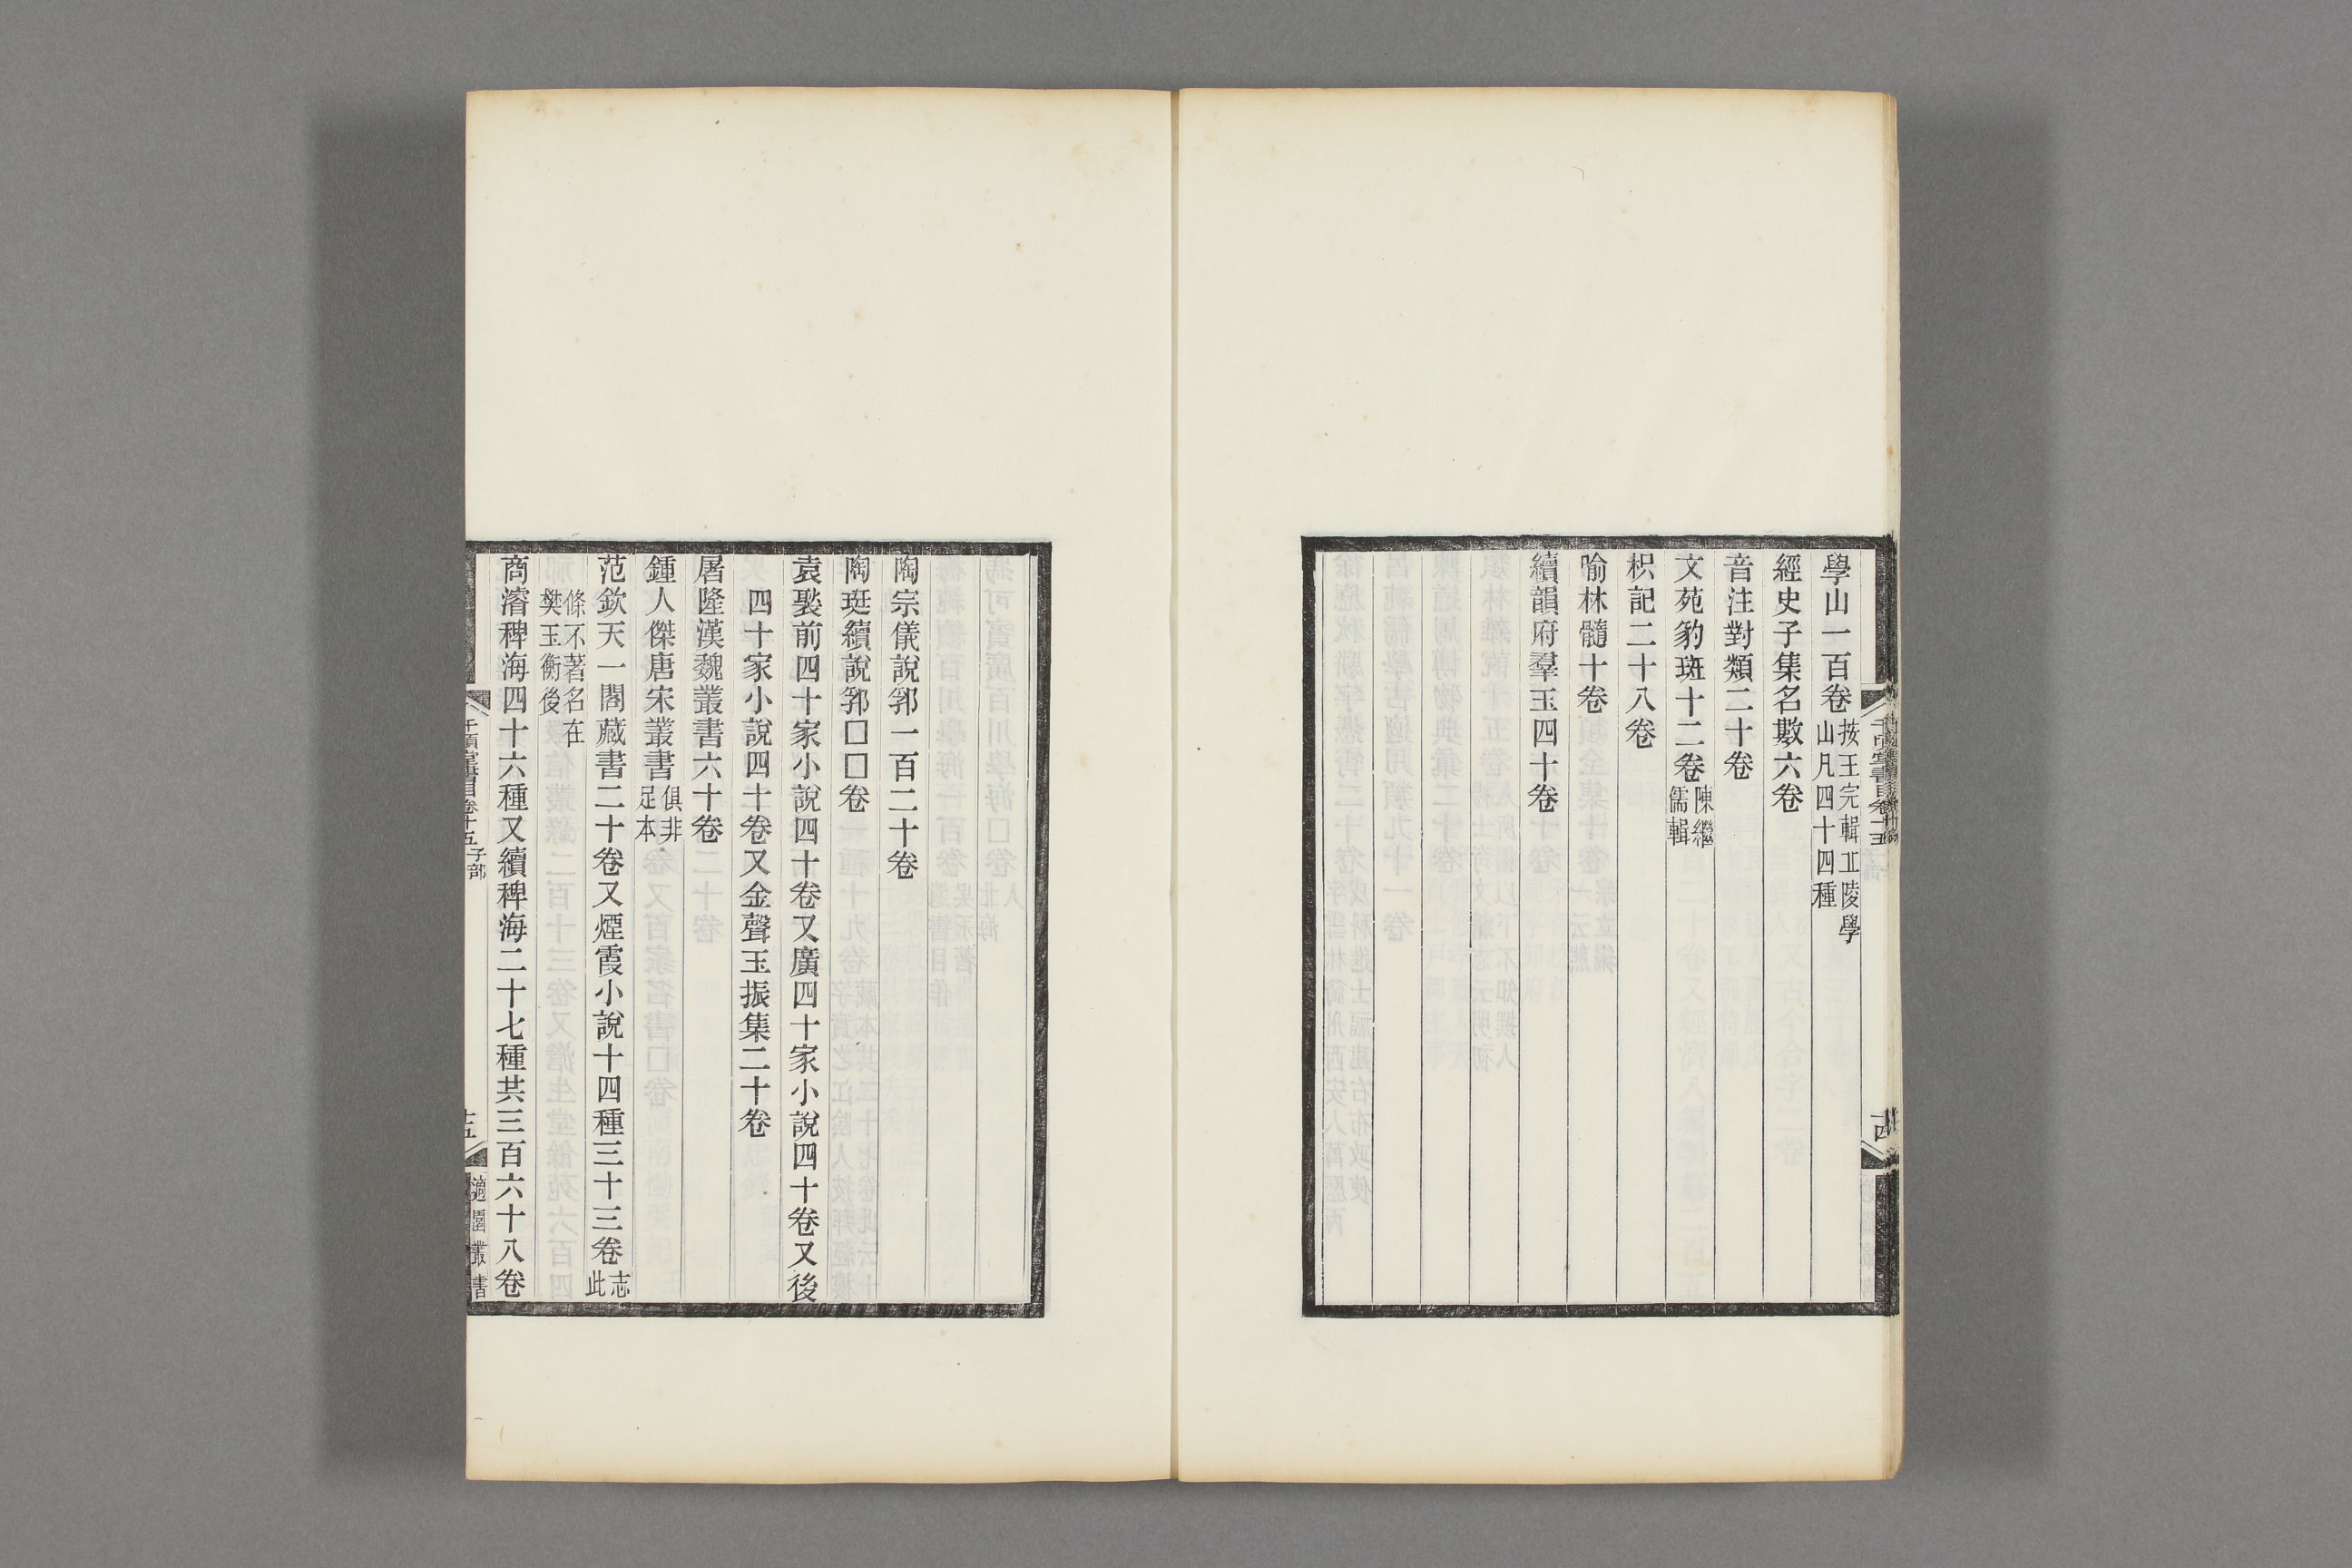 學山一百卷按王完輯丘陵學山凡四十四種
經史子集名數六卷
音注對類二十卷
文苑豹斑十二卷陳繼儒輯
枳記二十八卷
喻林髓十卷
續韻府羣玉四十卷
千頃堂書目卷十五
十四
陶宗儀說郛一百二十卷
陶珽續說郛□□卷
袁褧前四十家小說四十卷又廣四十家小說四十卷又後
四十家小說四十卷又金聲玉振集二十卷
屠隆漢魏叢書六十卷
鍾人傑唐宋叢書俱非足本
范欽天一閣藏書二十卷又煙霞小說十四種三十三卷志此
條不著名在樊玉衡後
商濬稗海四十六種又續稗海二十七種共三百六十八卷
千頃堂書目卷十五 子部
十五
適園叢書